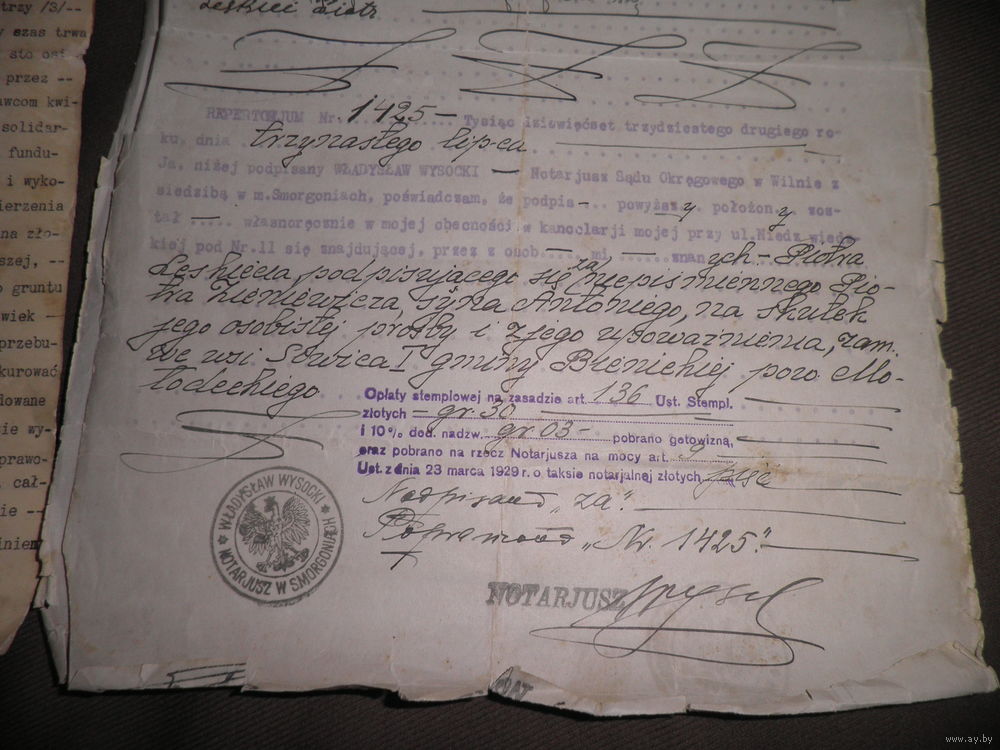 trzy /3/--
y czas trwa
sto osi
przez --
wcom kwi-
solidar-
fundu-
i wyko-
ierzenia
na zło-
szej, --
o gruntu
wiek --
przebu-
kurować
dowane
ie wy-
prawo-
cał-
ie --
iniem
Leśkieć Piotr
REPERTORJUM Nr. 1425 — Tysiąc dziewięćset trzydziestego drugiego ro-
ku, dnia trzynastego lipca
Ja, niżej podpisany WŁADYSŁAW WYSOCKI — Notarjusz Sądu Okręgowego w Wilnie z
siedzibą w m.Smorgoniach, poświadczam, że podpis — powyższy położony zos-
tał — własnoręcznie w mojej obecności w kancelarji mojej przy ul.Niedźwiedz-
kiej pod Nr.11 się znajdującej, przez z osob — mi, — znanych — Piotra
Leśkiecia, podpisującego się za niepiśmiennego Pio-
tra Zieniewicza, syna Antoniego, na skutek
jego osobistej prośby i z jego upoważnienia, zam.
we wsi Sowica I gminy Bienickiej pow. Mo-
łodeckiego
Opłaty stemplowej na zasadzie art. 136 Ust. Stempl.
złotych — gr. 30
i 10% dod. nadzw. gr 03 — pobrano gotowizną,
oraz pobrano na rzecz Notarjusza na mocy art. 9
Ust. z dnia 23 marca 1929 r. o taksie notarjalnej złotych pięć
Nadpisano „za".
Poprawiono „Nr. 1425".
WŁADYSŁAW WYSOCKI
NOTARJUSZ W SMORGONIACH
NOTARJUSZ
www.ay.by